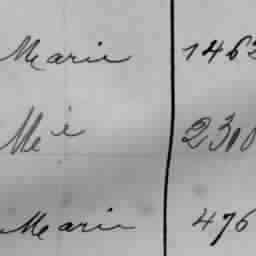 Marie 1463
Me ie 2310
Marie 476